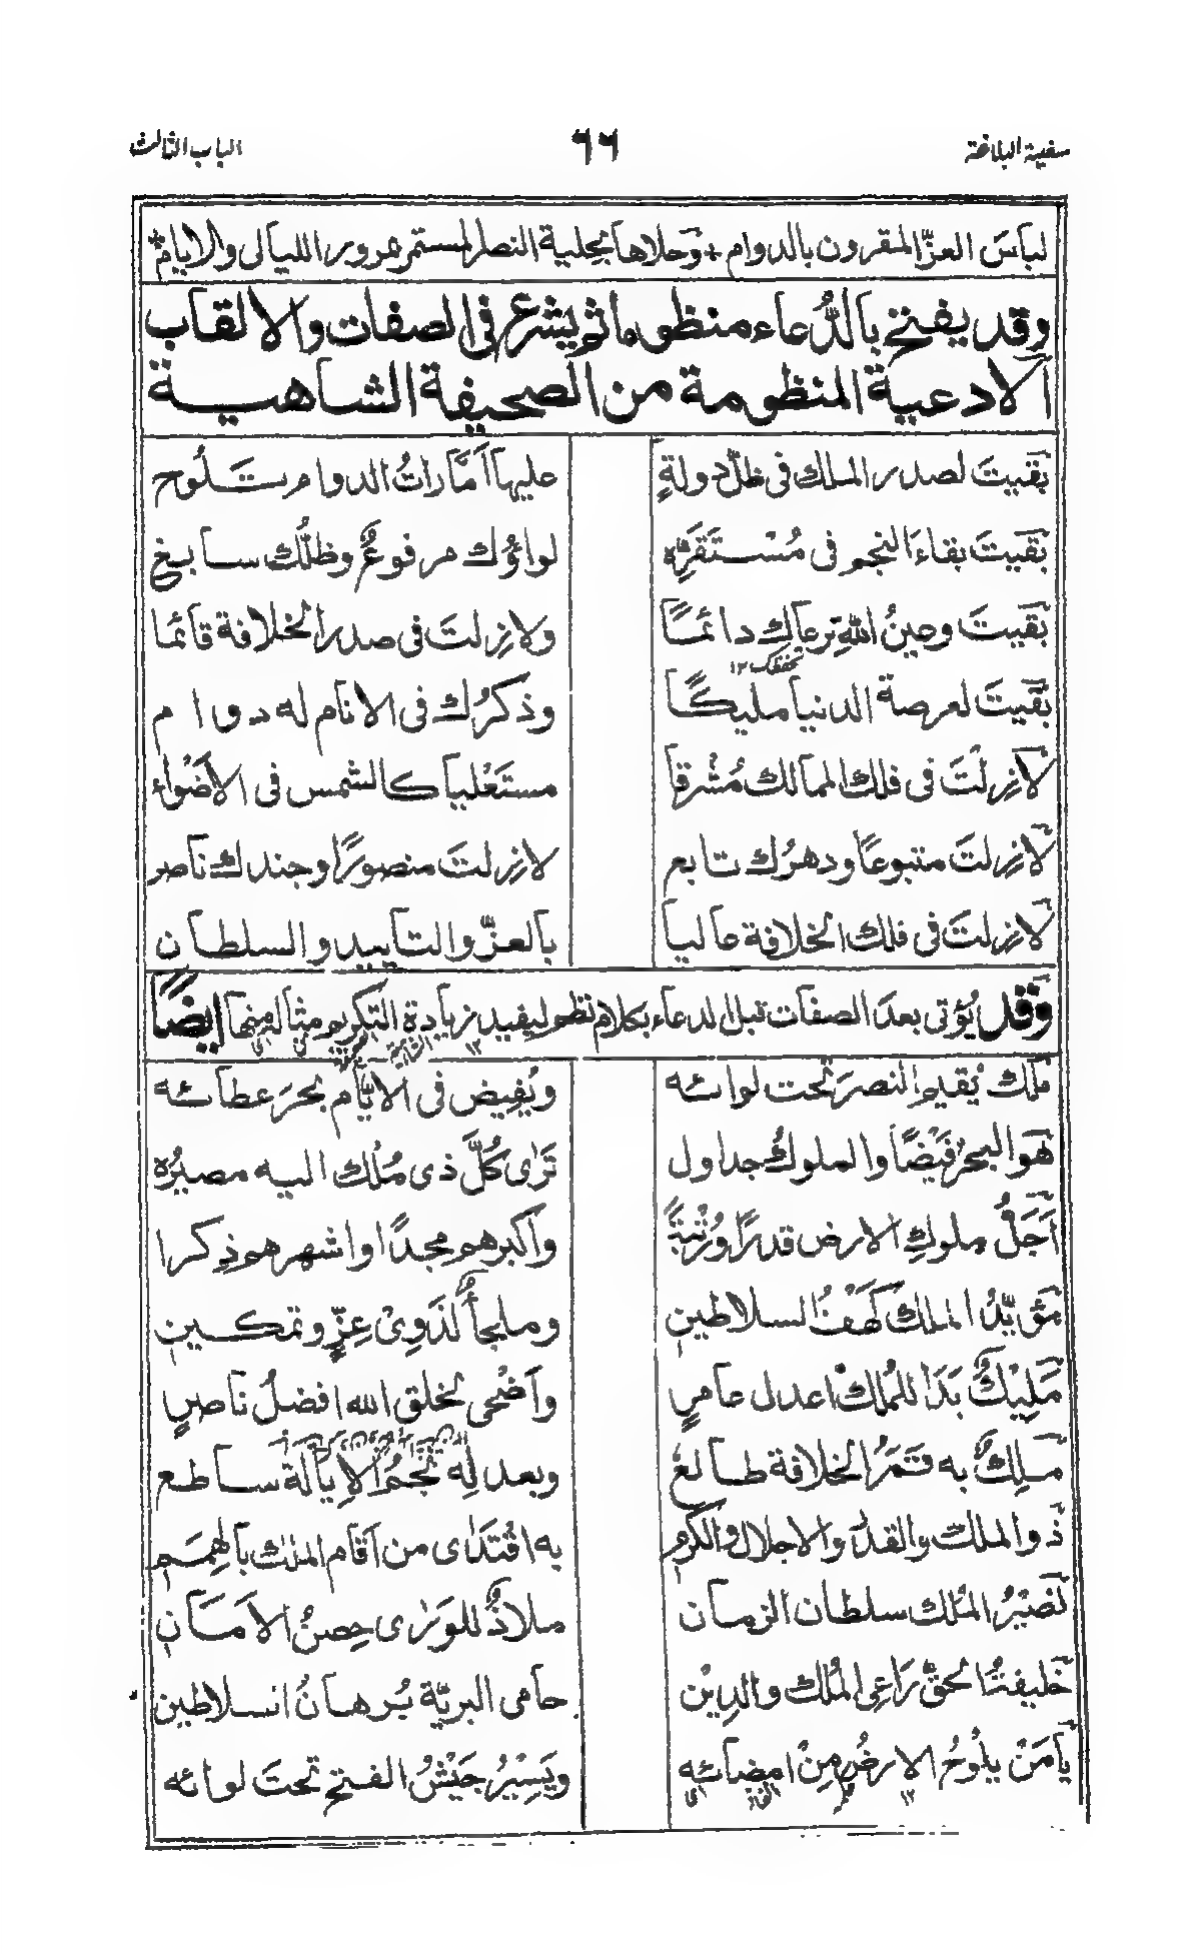 سفينة البلاغة ٦٦ الباب الثالث
لباسَ العزّ المقرون بالدوام + وَحلاها بحلية النصر المستمر بمرور الليالى والايام *
وقد يفتح بالدُّعاء منظوما ثم يشرع فى الصفات والالقاب
الادعية المنظومة من الصحيفة الشاهية
بقيتَ لصدر الملك فى ظلّ دولةٍ عليها اَمَاراتُ الدوام تَلُوح
بقيتَ بقاءَ النجم فى مُسْتَقَرِّه لواؤك مرفوعٌ وظلُّك سابغ
بقيتَ وعينُ اللهِ ترعاك دائمًا ولازلتَ فى صدر الخلافة قائما
تحفظك ١٢
بقيتَ لعرصة الدنيا مليكًا وذكرُك فى الانام له دوام
لازلْتَ فى فلك الممالك مُشْرقا مستَعْليا كالشمس فى الاَضْواء
لازلتَ متبوعًا ودهرُك تابع لازلتَ منصورًا وجندك ناصر
لازلتَ فى فلك الخلافة عاليا بالعزّ والتاييد والسلطان
وقد يُؤتى بعدَ الصفات قبل الدعاء بكلام نظم ليفيد زيادة التكريم مثاله منها ايضًا
ملك يُقيم النصرَ تحت لوائه ويُفيض فى الايّام بحرَ عطائه
هو البحرُ فَيْضًا والملوكُ جداول تَرٰى كلَّ ذى مُلك اليه مصيرُه
اَجَلُّ ملوكِ الارض قدرًا ورُتبةً واكبرهم مجدًا واشهرهم ذِكرا
مؤيّدُ الملك كَهْفُ السلاطين وملجأٌ لذَوِىْ عِزٍّ وتمكين
مَلِيْكٌ بَدَا للمُلك اعدل عامرٍ واَضْحى لخلق الله افضلُ ناصرٍ
ملِكٌ به قَمَرُ الخلافة طالع وبعدله نَجْمُ الاِيالة ساطع
ذو الملك والقدر والاجلال والكرم به اقْتَدٰى من اَقام الملك بالهِمَم
نَصيْرُ المُلك سلطان الزمان ملاذٌ للوَرٰى حِصنُ الاَمان
خليفتُ الحقّ رَاعِى المُلك والدِيْن حامى البريّة بُرهانُ السلاطين
يا مَنْ يلُوحُ الارضُ مِنْ امضائه ويَسِيْرُ جَيْشُ الفتح تحتَ لوائه